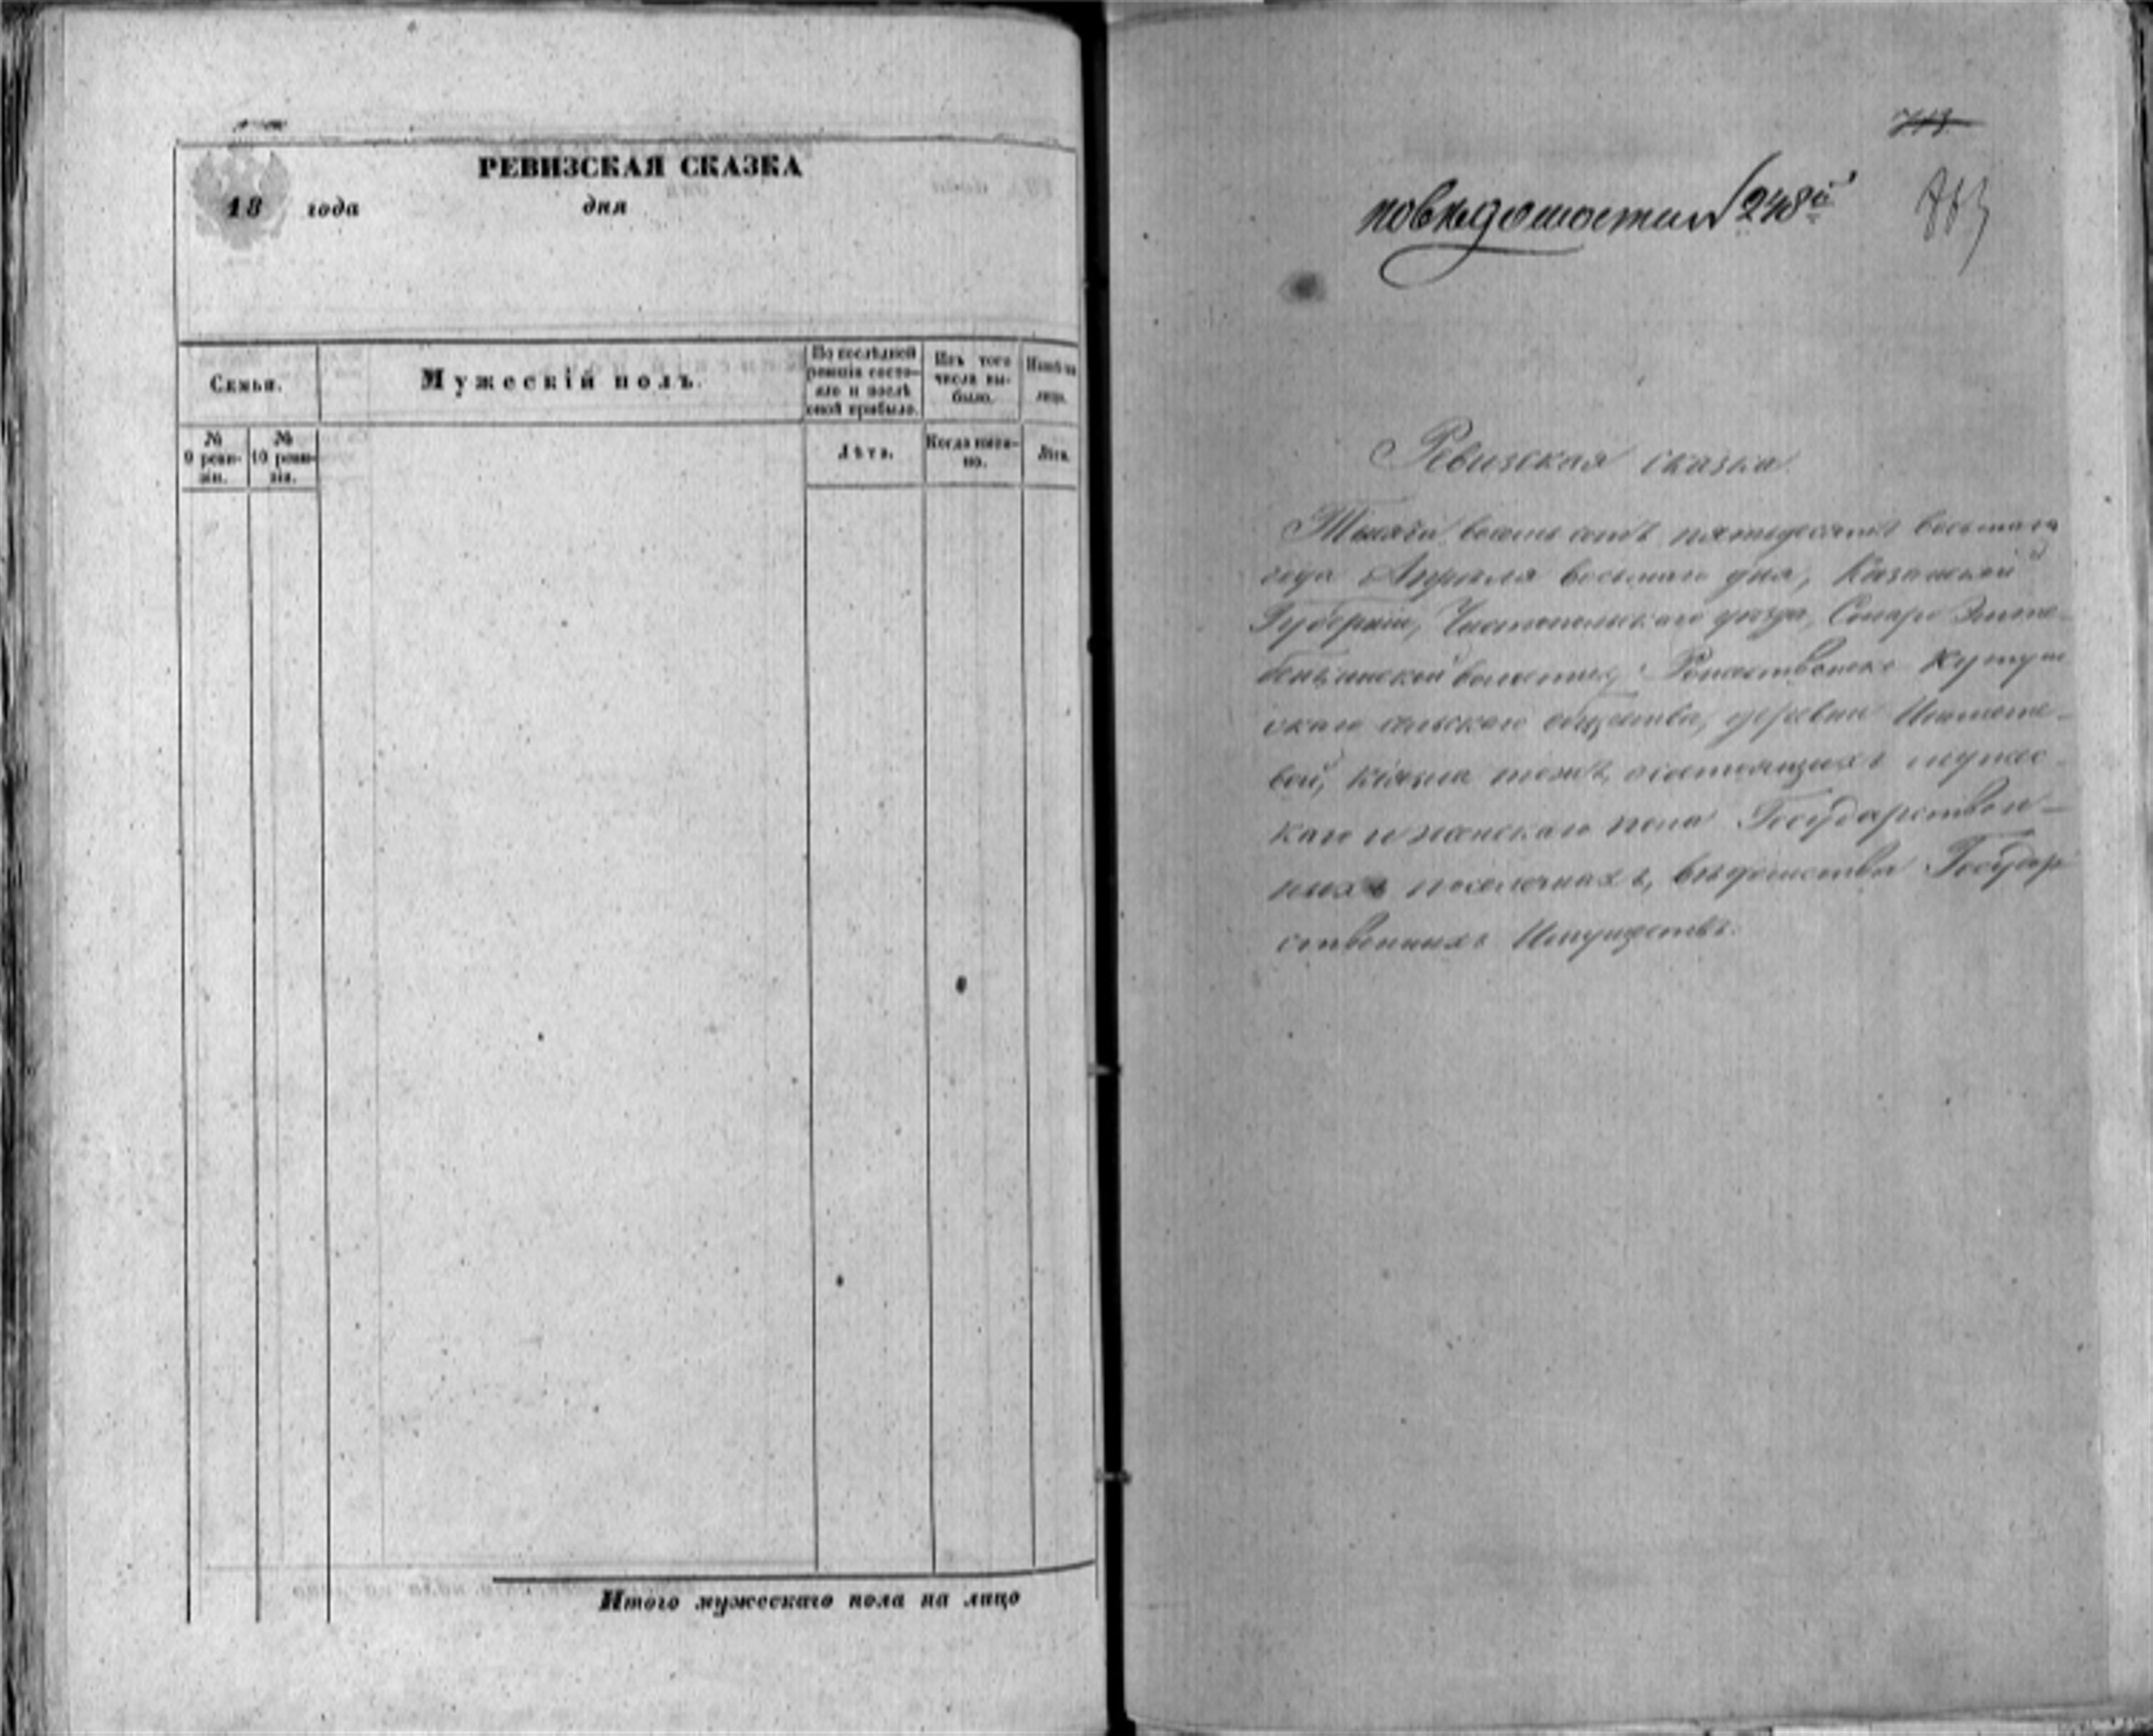 РЕВИЗСКАЯ СКАЗКА
18 года дня
Семьи.
Мужескій полъ.
По послѣдней ревизіи состояло и послѣ оной прибыло.
Изъ того числа выбыло.
Нынѣ на лицо.
№ 9 ревизіи.
№ 10 ревизіи.
Лѣта.
Когда именно.
Лѣта.
Итого мужескаго пола на лицо
713
по вѣдомости 248й
Ревизская сказка
Тысяча восемь сотъ пятьдесятъ восьмаго
года Апрѣля восьмаго дня, Казанской
Губерніи, Чистопольскаго уѣзда, Старо
волости,
скаго сельскаго общества, деревни
вой, тожъ, состоящихъ мужес-
каго и женскаго пола Государствен-
ныхъ поселянахъ, вѣдомства Государ
ственныхъ Имуществъ.